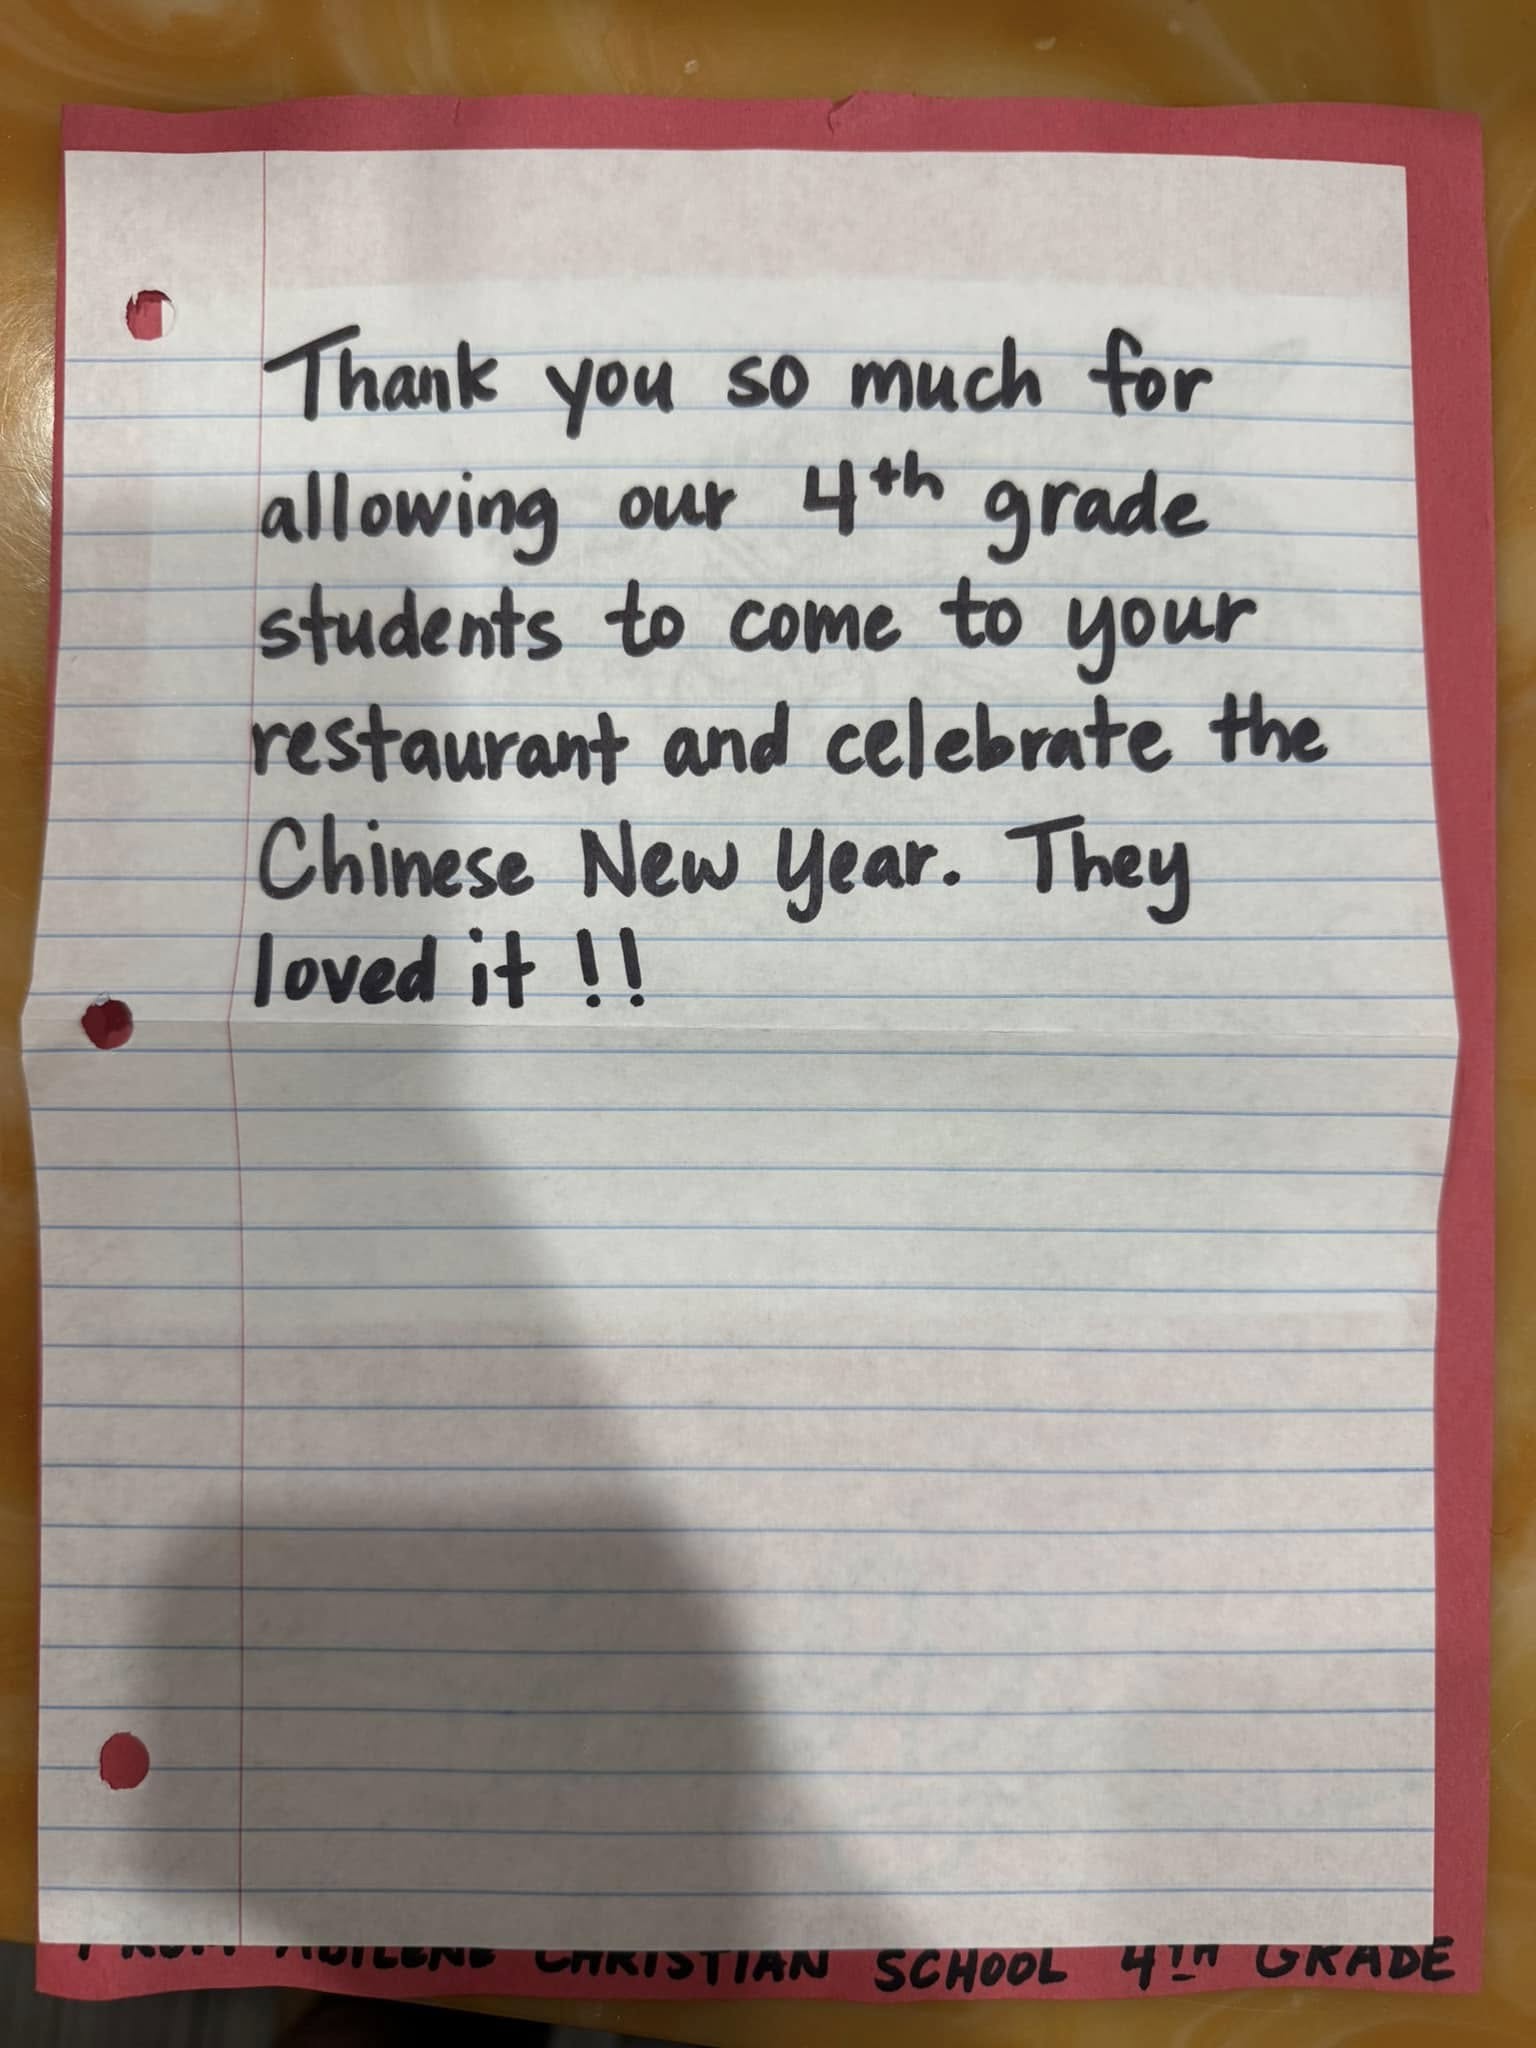 Thank you so much for
allowing our 4th grade
students to come to your
restaurant and celebrate the
Chinese New Year. They
loved it !!
FROM ABILENE CHRISTIAN SCHOOL 4TH GRADE